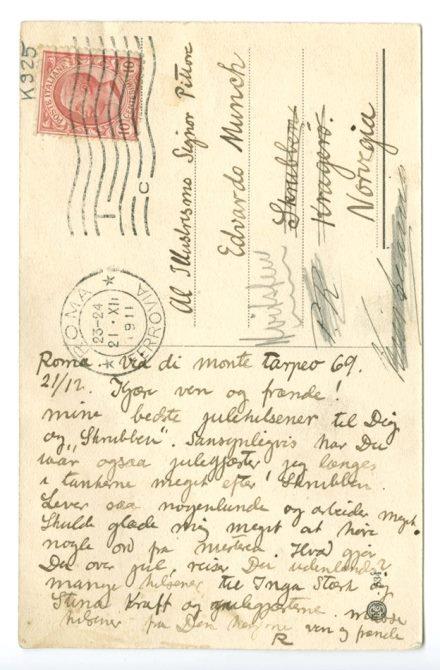 K925
POSTE ITALIANE
10 CENTESIMI 10
ROMA
23-24
21·XII
1911
FERROVIA
Al Illustresmo Signor Pittore
Edvardo Munch
Skrubben
Kragerø.
Norvegia
Hvitsten
Roma via di monte tarpeo 69.
21/12. Kjære ven og frænde!
mine bedste julehilsener til Dig
og "Skrubben". Sansynligvis har Du
iaar ogsaa julegjæster jeg længes
i tankerne meget efter Skrubben.
Lever saa nogenlunde og arbeider meget.
Skulde glæde mig meget at høre
nogle ord fra Hvad gjør
Du over jul, reiser Du udenlands?
mange hilsener til Inga Stærk og
Stina Kraft og julegjæsterne.
hilsener fra Din ven og frænde
R